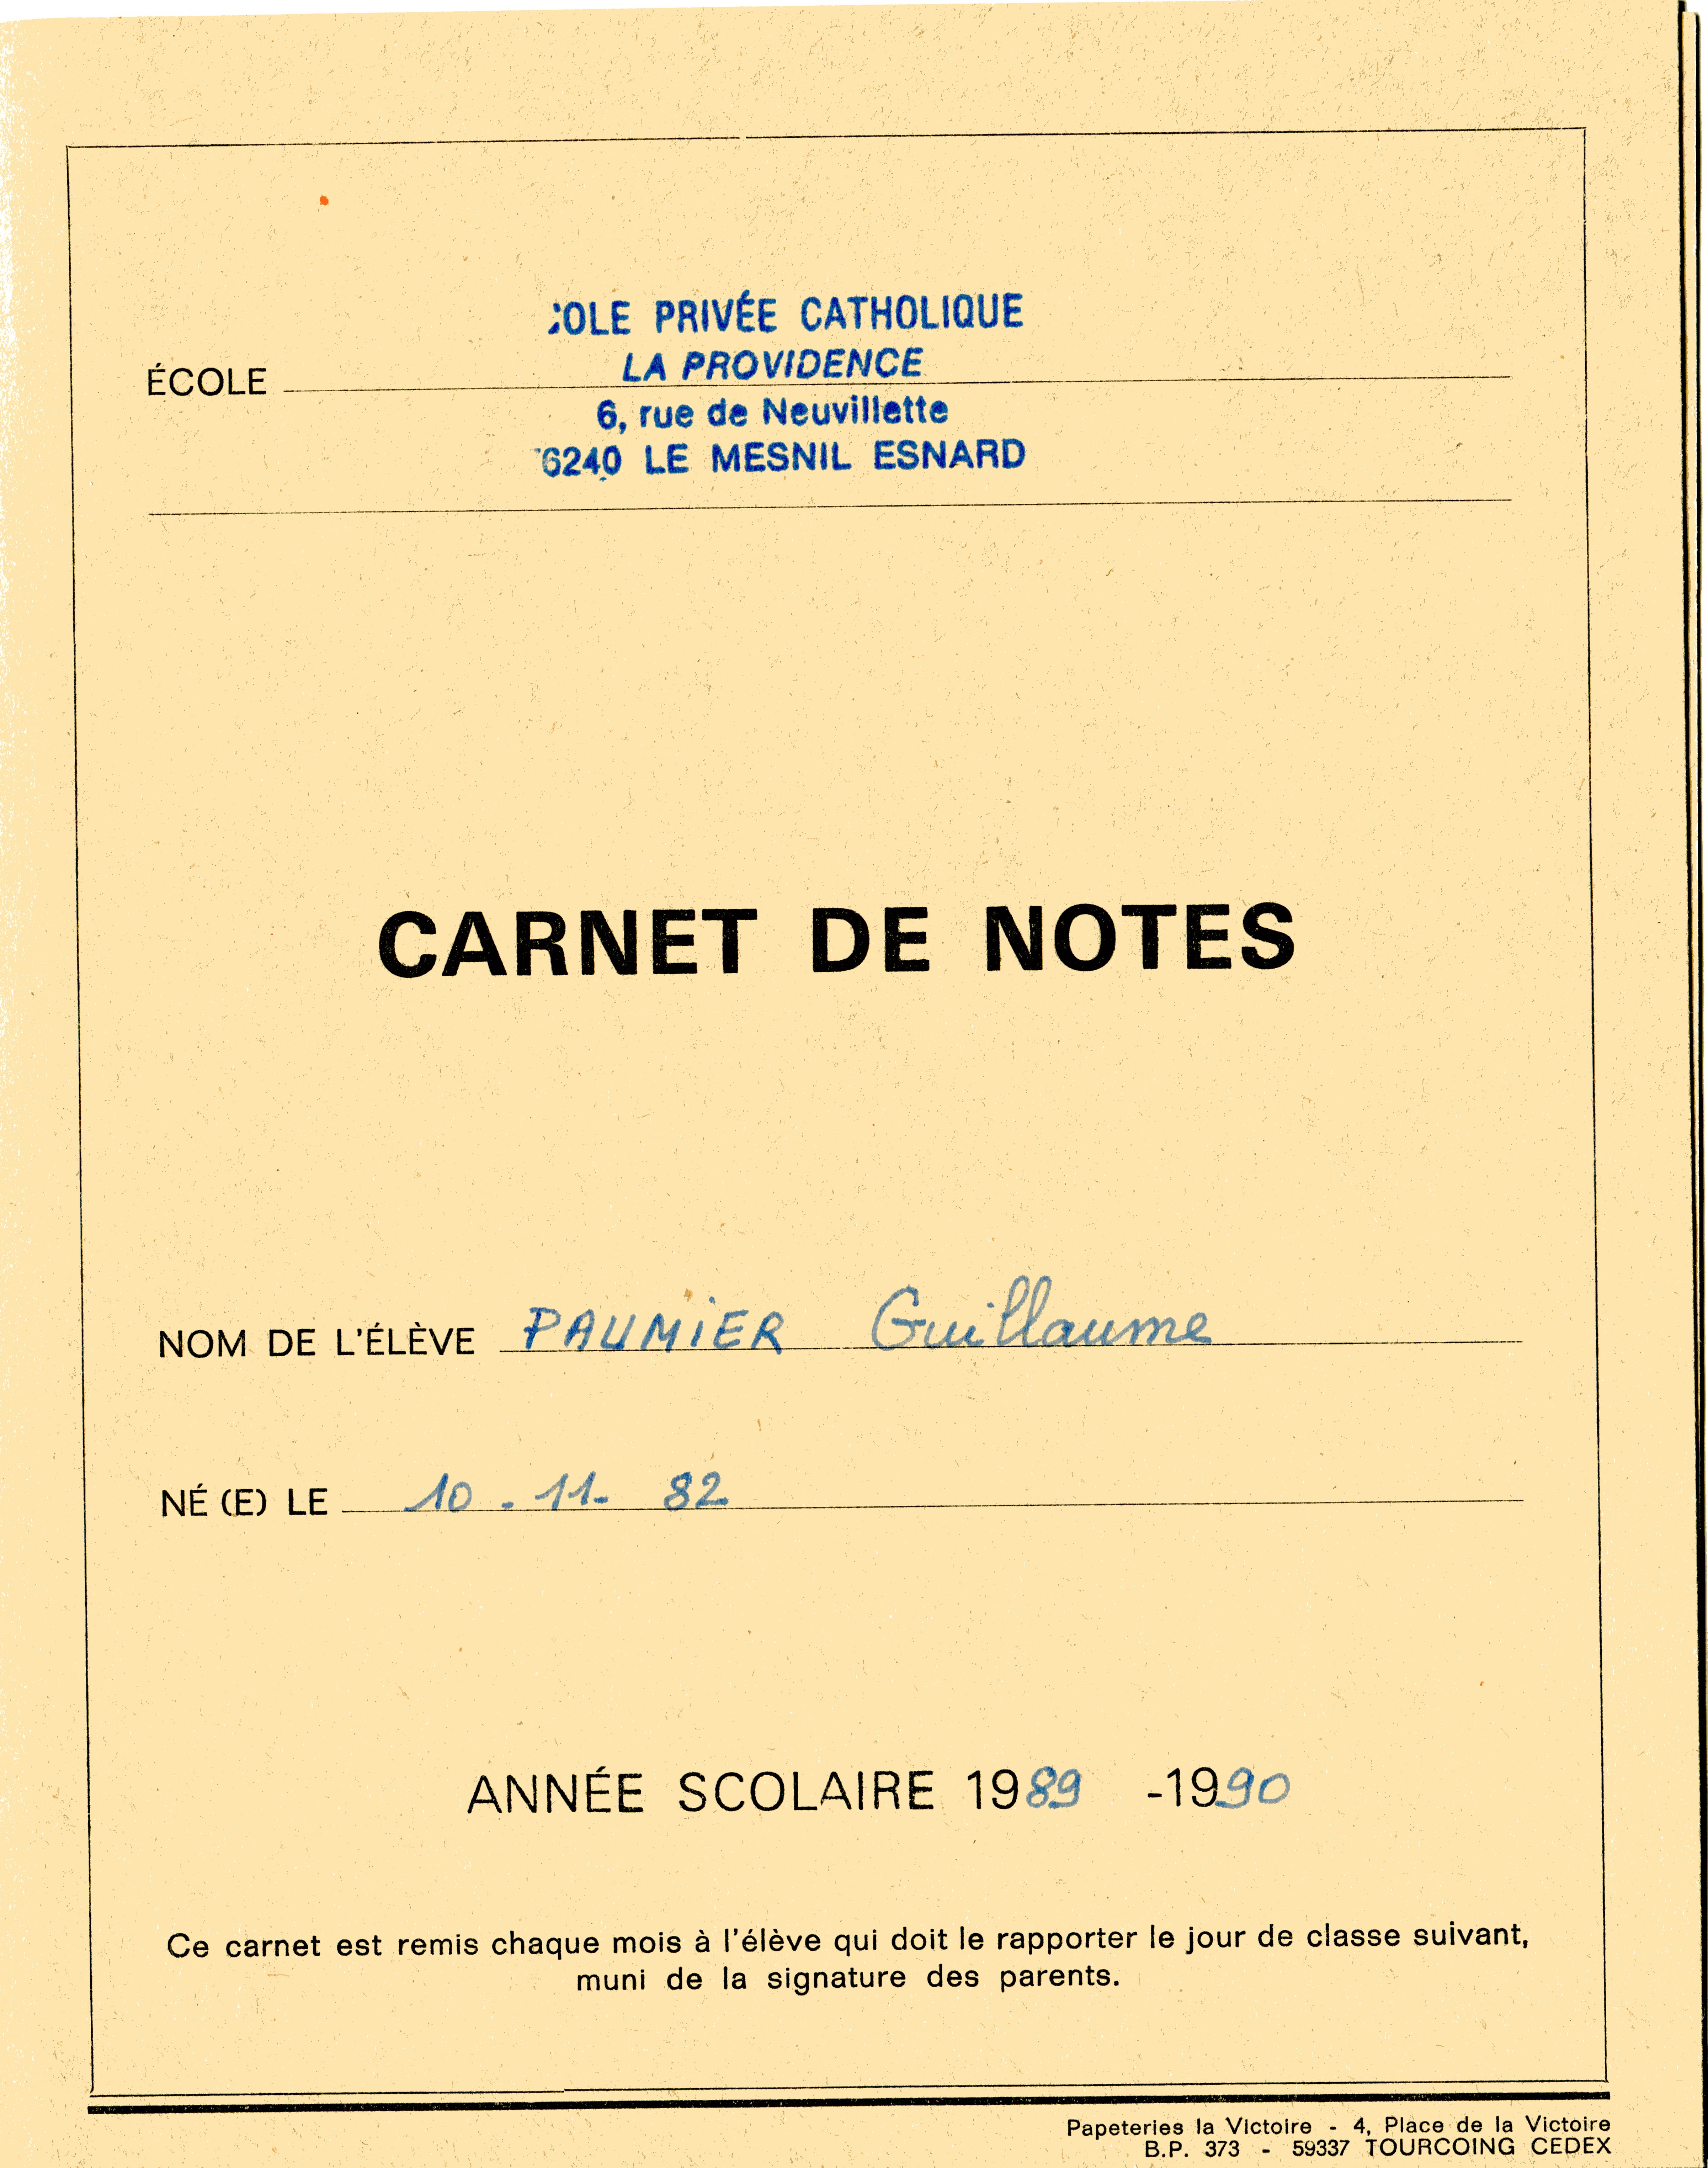 :OLE PRIVÉE CATHOLIQUE
LA PROVIDENCE
ÉCOLE
6, rue de Neuvillette
6240 LE MESNIL ESNARD
CARNET DE NOTES
NOM DE L'ÉLÈVE PAUMiER Guillaume
NÉ (E) LE 10 - 11- 82
ANNÉE SCOLAIRE 1989 -1990
Ce carnet est remis chaque mois à l'élève qui doit le rapporter le jour de classe suivant,
muni de la signature des parents.
Papeteries la Victoire - 4, Place de la Victoire
B.P. 373 - 59337 TOURCOING CEDEX